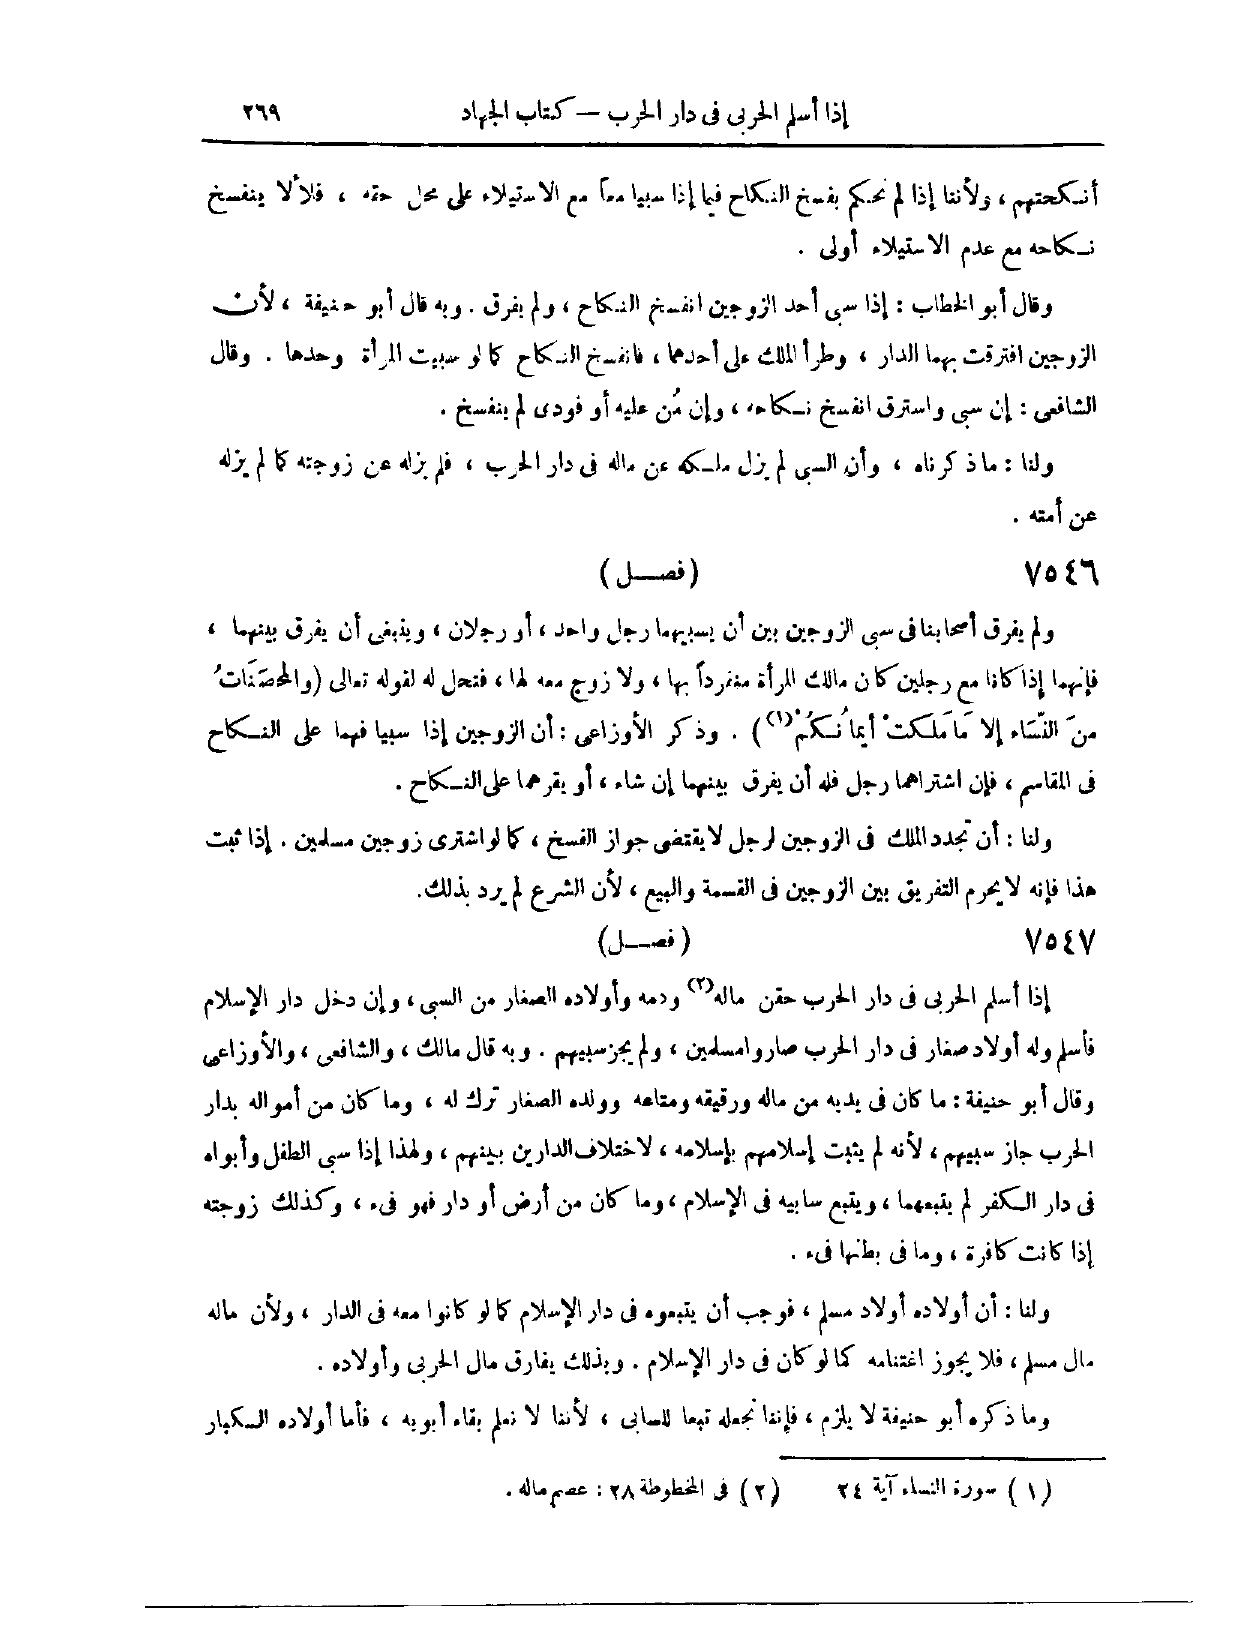 إذا أسلم الحربى فى دار الحرب — كتاب الجهاد ٢٦٩
أنكحتهم ، ولأننا إذا لم نحكم بفسخ النكاح فيما إذا سبيا معاً مع الاستيلاء على محل حقه ، فلألا ينفسخ
نكاحه مع عدم الاستيلاء أولى .
وقال أبو الخطاب : إذا سبى أحد الزوجين انفسخ النكاح ، ولم يفرق . وبه قال أبو حنيفة ، لأن
الزوجين افترقت بهما الدار ، وطرأ الملك على أحدهما ، فانفسخ النكاح كما لو سبيت المرأة وحدها . وقال
الشافعى : إن سبى واسترق انفسخ نكاحه ، وإن مُن عليه أو فودى لم ينفسخ .
ولنا : ما ذكرناه ، وأن السبى لم يزل ملكه عن ماله فى دار الحرب ، فلم يزله عن زوجته كما لم يزله
عن أمته .
٧٥٤٦ ( فصل )
ولم يفرق أصحابنا فى سبى الزوجين بين أن يسبيهما رجل واحد ، أو رجلان ، وينبغى أن يفرق بينهما ،
فإنهما إذا كانا مع رجلين كان مالك المرأة منفرداً بها ، ولا زوج معه لها ، فتحل له لقوله تعالى (والمحصَنَاتُ
مِنَ النِّسَاء إلا مَا مَلكتْ أيمانُكُمْ(١) ) . وذكر الأوزاعى : أن الزوجين إذا سبيا فهما على النكاح
فى المقاسم ، فإن اشتراهما رجل فله أن يفرق بينهما إن شاء ، أو يقرهما على النكاح .
ولنا : أن تجدد الملك فى الزوجين لرجل لا يقتضى جواز الفسخ ، كما لو اشترى زوجين مسلمين . إذا ثبت
هذا فإنه لا يحرم التفريق بين الزوجين فى القسمة والبيع ، لأن الشرع لم يرد بذلك .
٧٥٤٧ ( فصل )
إذا أسلم الحربى فى دار الحرب حقن ماله(٢) ودمه وأولاده الصغار من السبى ، وإن دخل دار الإسلام
فأسلم وله أولاد صغار فى دار الحرب صاروا مسلمين ، ولم يجز سبيهم . وبه قال مالك ، والشافعى ، والأوزاعى
وقال أبو حنيفة : ما كان فى يديه من ماله ورقيقه ومتاعه وولده الصغار ترك له ، وما كان من أمواله بدار
الحرب جاز سبيهم ، لأنه لم يثبت إسلامهم بإسلامه ، لاختلاف الدارين بينهم ، ولهذا إذا سبى الطفل وأبواه
فى دار الكفر لم يتبعهما ، ويتبع سابيه فى الإسلام ، وما كان من أرض أو دار فهو فىء ، وكذلك زوجته
إذا كانت كافرة ، وما فى بطنها فىء .
ولنا : أن أولاده أولاد مسلم ، فوجب أن يتبعوه فى دار الإسلام كما لو كانوا معه فى الدار ، ولأن ماله
مال مسلم ، فلا يجوز اغتنامه كما لو كان فى دار الإسلام . وبذلك يفارق مال الحربى وأولاده .
وما ذكره أبو حنيفة لا يلزم ، فإننا نجعله تبعا للسابى ، لأننا لا نعلم بقاء أبويه ، فأما أولاده الكبار
( ١ ) سورة النساء آية ٢٤ ( ٢ ) فى المخطوطة ٢٨ : عصم ماله .